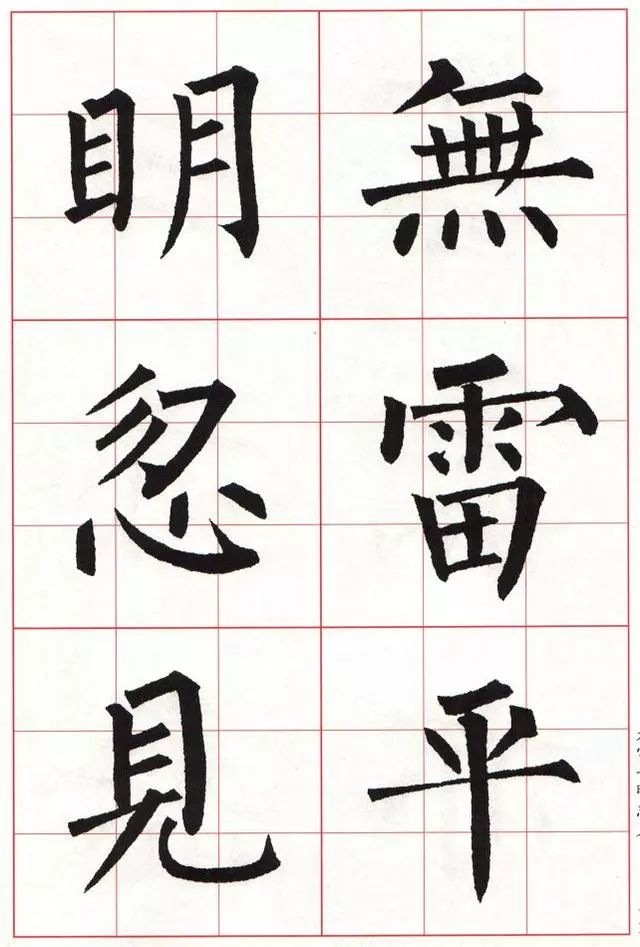 無雷平
明忽見